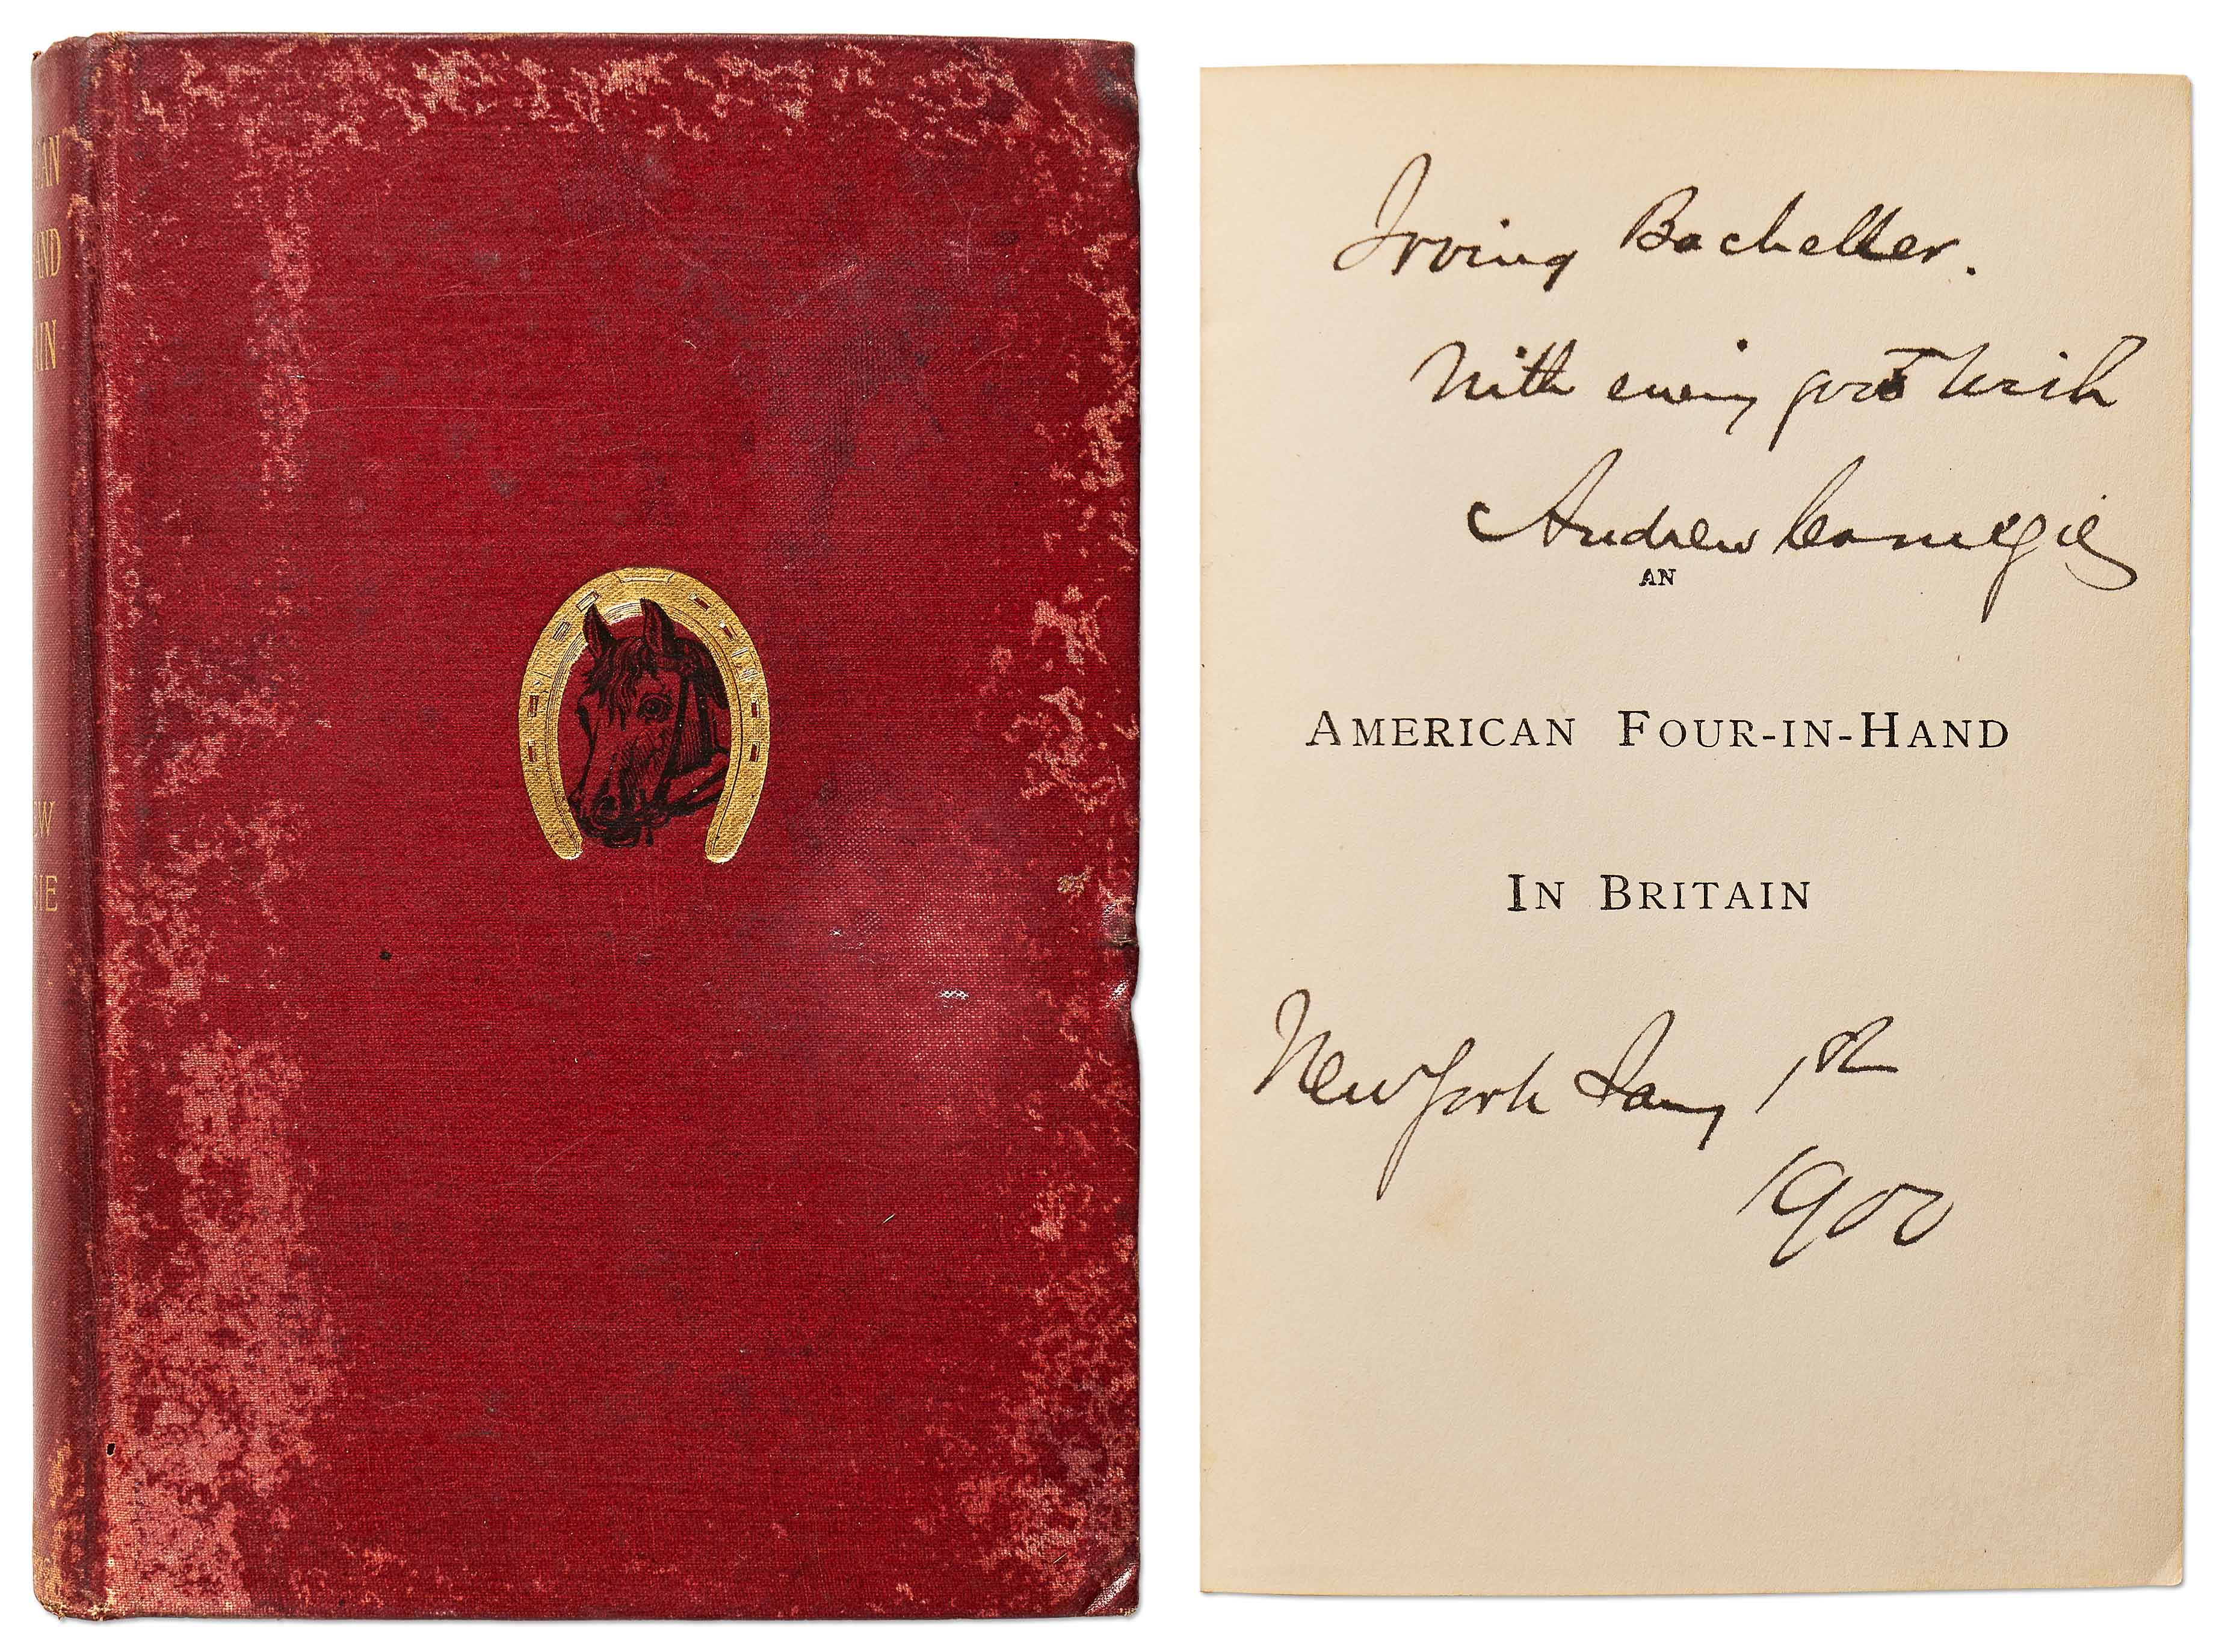 AN
AND
AIN
EW
GIE
Irving Bacheller.
With every good wish
Andrew Carnegie
AN
AMERICAN FOUR-IN-HAND
IN BRITAIN
New York Jany 1st
1900